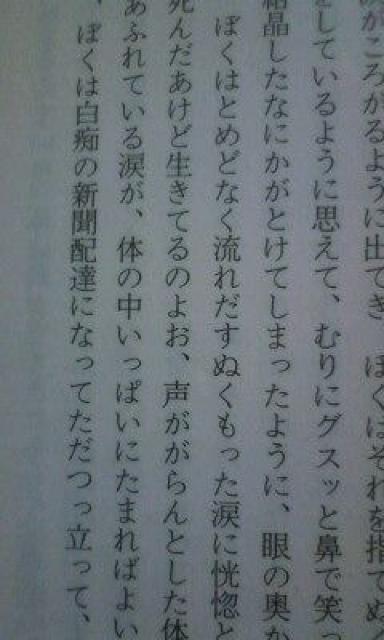 がころがるように出てき、ぼくはそれを指でぬ
としているように思えて、むりにグスッと鼻で笑っ
結晶したなにかがとけてしまったように、眼の奥か
ぼくはとめどなく流れだすぬくもった涙に恍惚と
死んだあけど生きてるのよお、声ががらんとした体
あふれている涙が、体の中いっぱいにたまればよい
、ぼくは白痴の新聞配達になってただつっ立って、